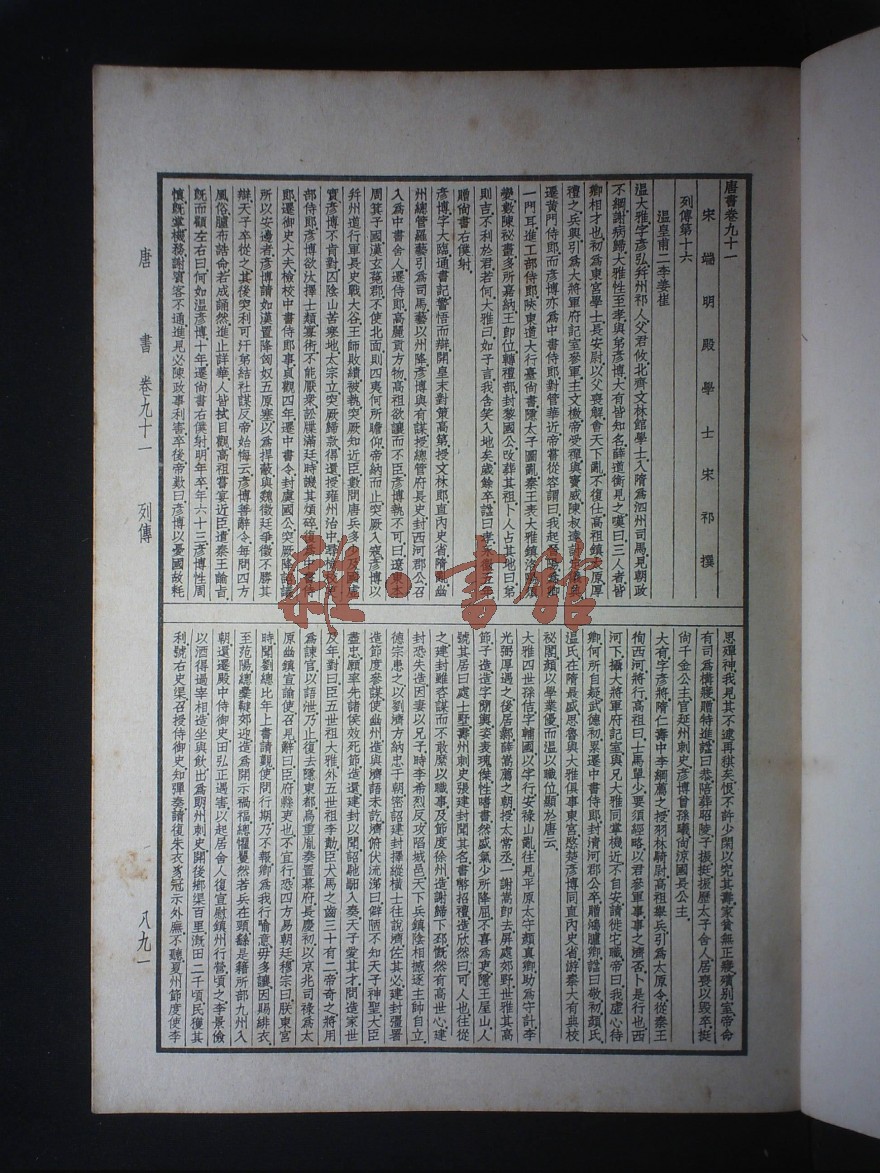 唐書卷九十一
宋端明殿學士宋祁撰
列傳第十六
溫皇甫二李姜崔
溫大雅字彥弘幷州祁人父君攸北齊文林館學士入隋爲泗州司馬見朝政
不綱謝病歸大雅性至孝與弟彥博大有皆知名薛道衡見之嘆曰三人者皆
卿相才也初爲東宮學士長安尉以父喪解會天下亂不復仕高祖鎭太原厚
禮之兵興引爲大將軍府記室參軍主文檄帝受禪與竇威陳叔達討定儀典
遷黃門侍郎而彥博亦爲中書侍郎對管華近帝嘗從容謂曰我起晉陽爲卿
一門耳進工部侍郎陝東道大行臺尙書隱太子圖亂秦王表大雅鎭洛陽須
變數陳祕畫多所嘉納王卽位轉禮部封黎國公改葬其祖卜人占其地曰弟
則吉不利於君若何大雅曰如子言我含笑入地矣歲餘卒諡曰孝永徽五年
贈尙書右僕射
彥博字大臨通書記警悟而辯開皇末對策高第授文林郎直內史省隋亂幽
州總管羅藝引爲司馬藝以州降彥博與有謀授總管府長史封西河郡公召
入爲中書舍人遷侍郎高麗貢方物高祖欲讓而不臣彥博執不可曰遼東本
周箕子國漢玄菟郡不使北面則四夷何所瞻仰帝納而止突厥入寇彥博以
幷州道行軍長史戰大谷王師敗績被執突厥知近臣數問唐兵多少及國虛
實彥博不肯對囚陰山苦寒地太宗立突厥歸款得還授雍州治中尋檢校吏
部侍郎彥博欲汰擇士類寡術不能厭衆訟牒滿廷時譏其煩碎復爲中書侍
郎遷御史大夫檢校中書侍郎事貞觀四年遷中書令封虞國公突厥降詔議
所以安邊者彥博請如漢置降匈奴五原塞以爲捍蔽與魏徵廷爭徵不勝其
辯天子卒從之其後突利可汗弟結社謀反帝始悔云彥博善辭令每問四方
風俗臚布誥命若成誦然進止詳華人皆拭目觀高祖嘗宴近臣遣秦王諭旨
旣而顧左右曰何如溫彥博十年遷尙書右僕射明年卒年六十三彥博性周
愼旣掌機務謝賓客不通進見必陳政事利害卒後帝歎曰彥博以憂國故耗
思殫神我見其不逮再朞矣恨不許少閑以究其壽家貧無正寢殯別室帝命
有司爲構寢贈特進諡曰恭陪葬昭陵子振挺振歷太子舍人居喪以毀卒挺
尙千金公主官延州刺史彥博曾孫曦尙涼國長公主
大有字彥將隋仁壽中李綱薦之授羽林騎尉高祖舉兵引爲太原令從秦王
徇西河將行高祖曰士馬單少要須經略以君參軍事事之濟否卜是行也西
河下攝大將軍府記室與兄大雅同掌機近不自安請徙它職帝曰我虛心待
卿何所自疑武德初累遷中書侍郎封淸河郡公卒贈鴻臚卿諡曰敬初顏氏
溫氏在隋最盛思魯與大雅俱事東宮愍楚彥博同直內史省游秦大有典校
秘閣顏以學業優而溫以職位顯於唐云
大雅四世孫佶字輔國以字行安祿山亂往見平原太守顏眞卿助爲守計李
光弼厚遇之後居鄴薛嵩薦之朝授太常丞一謝嵩卽去屛處郊野世雅其高
節子造造字簡輿姿表瑰傑性嗜書然盛氣少所降屈不喜爲吏隱王屋山人
號其居曰處士墅壽州刺史張建封聞其名書幣招禮造欣然曰可人也往從
之建封雖咨謀而不敢縻以職事及節度徐州造謝歸下邳慨然有高世心建
封恐失造因妻以兄子時李希烈反攻陷城邑天下兵鎭陰相撼逐主帥自立
德宗患之以劉濟方納忠于朝密詔建封擇縱橫士往說濟佐其必建封彊署
造節度參謀使幽州造與濟語未訖濟俯伏流涕曰僻陋不知天子神聖大臣
盡忠願率先諸侯效死節造還建封以聞詔馳馹入奏天子愛其才問造家世
及年對曰臣五世祖大雅外五世祖李勣臣犬馬之齒三十有二帝奇之將用
爲諫官以語泄乃止復去隱東都烏重胤奏置幕府長慶初以京兆司祿爲太
原幽鎭宣諭使召見辭曰臣府縣吏也不宜行恐四方易朝廷穆宗曰朕東宮
時聞劉總比年上書請覲使問行期乃不報卿爲我行喻意毋多讓因賜緋衣
至范陽總櫜鞬郊迎造爲開示禍福總懼矍然若兵在頸繇是籍所部九州入
朝還遷殿中侍御史田弘正遇害以起居舍人復宣慰鎭州行營頃之李景儉
以酒得過宰相造坐與飮出爲朗州刺史開後鄉渠百里溉田二千頃民獲其
利號右史渠召授侍御史知彈奏請復朱衣豸冠示外廡不聽夏州節度使李
唐書 卷九十一 列傳 八九一
雜·書館